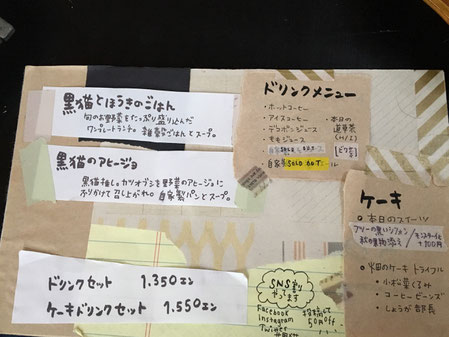 黒猫とほうきのごはん
旬のお野菜をたっぷり盛り込んだ
ワンプレートランチ。雑穀ごはんとスープ。
黒猫のアヒージョ
黒猫推し。カツオブシを野菜のアヒージョに
ふりかけて召し上がれ。自家製パンとスープ。
ドリンクセット 1.350エン
ケーキドリンクセット 1.550エン
ドリンクメニュー
・ホットコーヒー
・アイスコーヒー
・デコポンジュース
・ももジュース
・本日の
(H/I)
SOLD OUT
・自家製 SOLD OUT ール
ケーキ
本日のスイーツ
畑のケーキ トライフル
・小松菜くるみ
・コーヒービーンズ
・しょうが
SNS割り
やってます
Facebook
Instagram
Twitter
投稿して
50円off